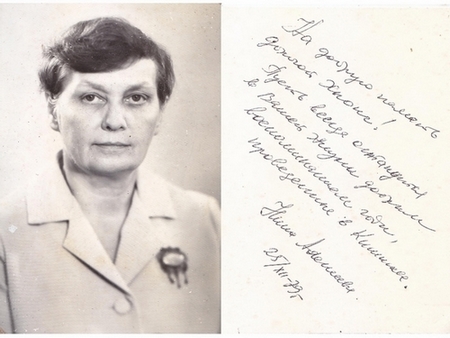 На добрую память
дорогой Жанне!
Пусть всегда останутся
в Вашей жизни добрым
воспоминанием годы,
проведенные в Кишиневе.
Нина Алексеевна
25/XII-79г.